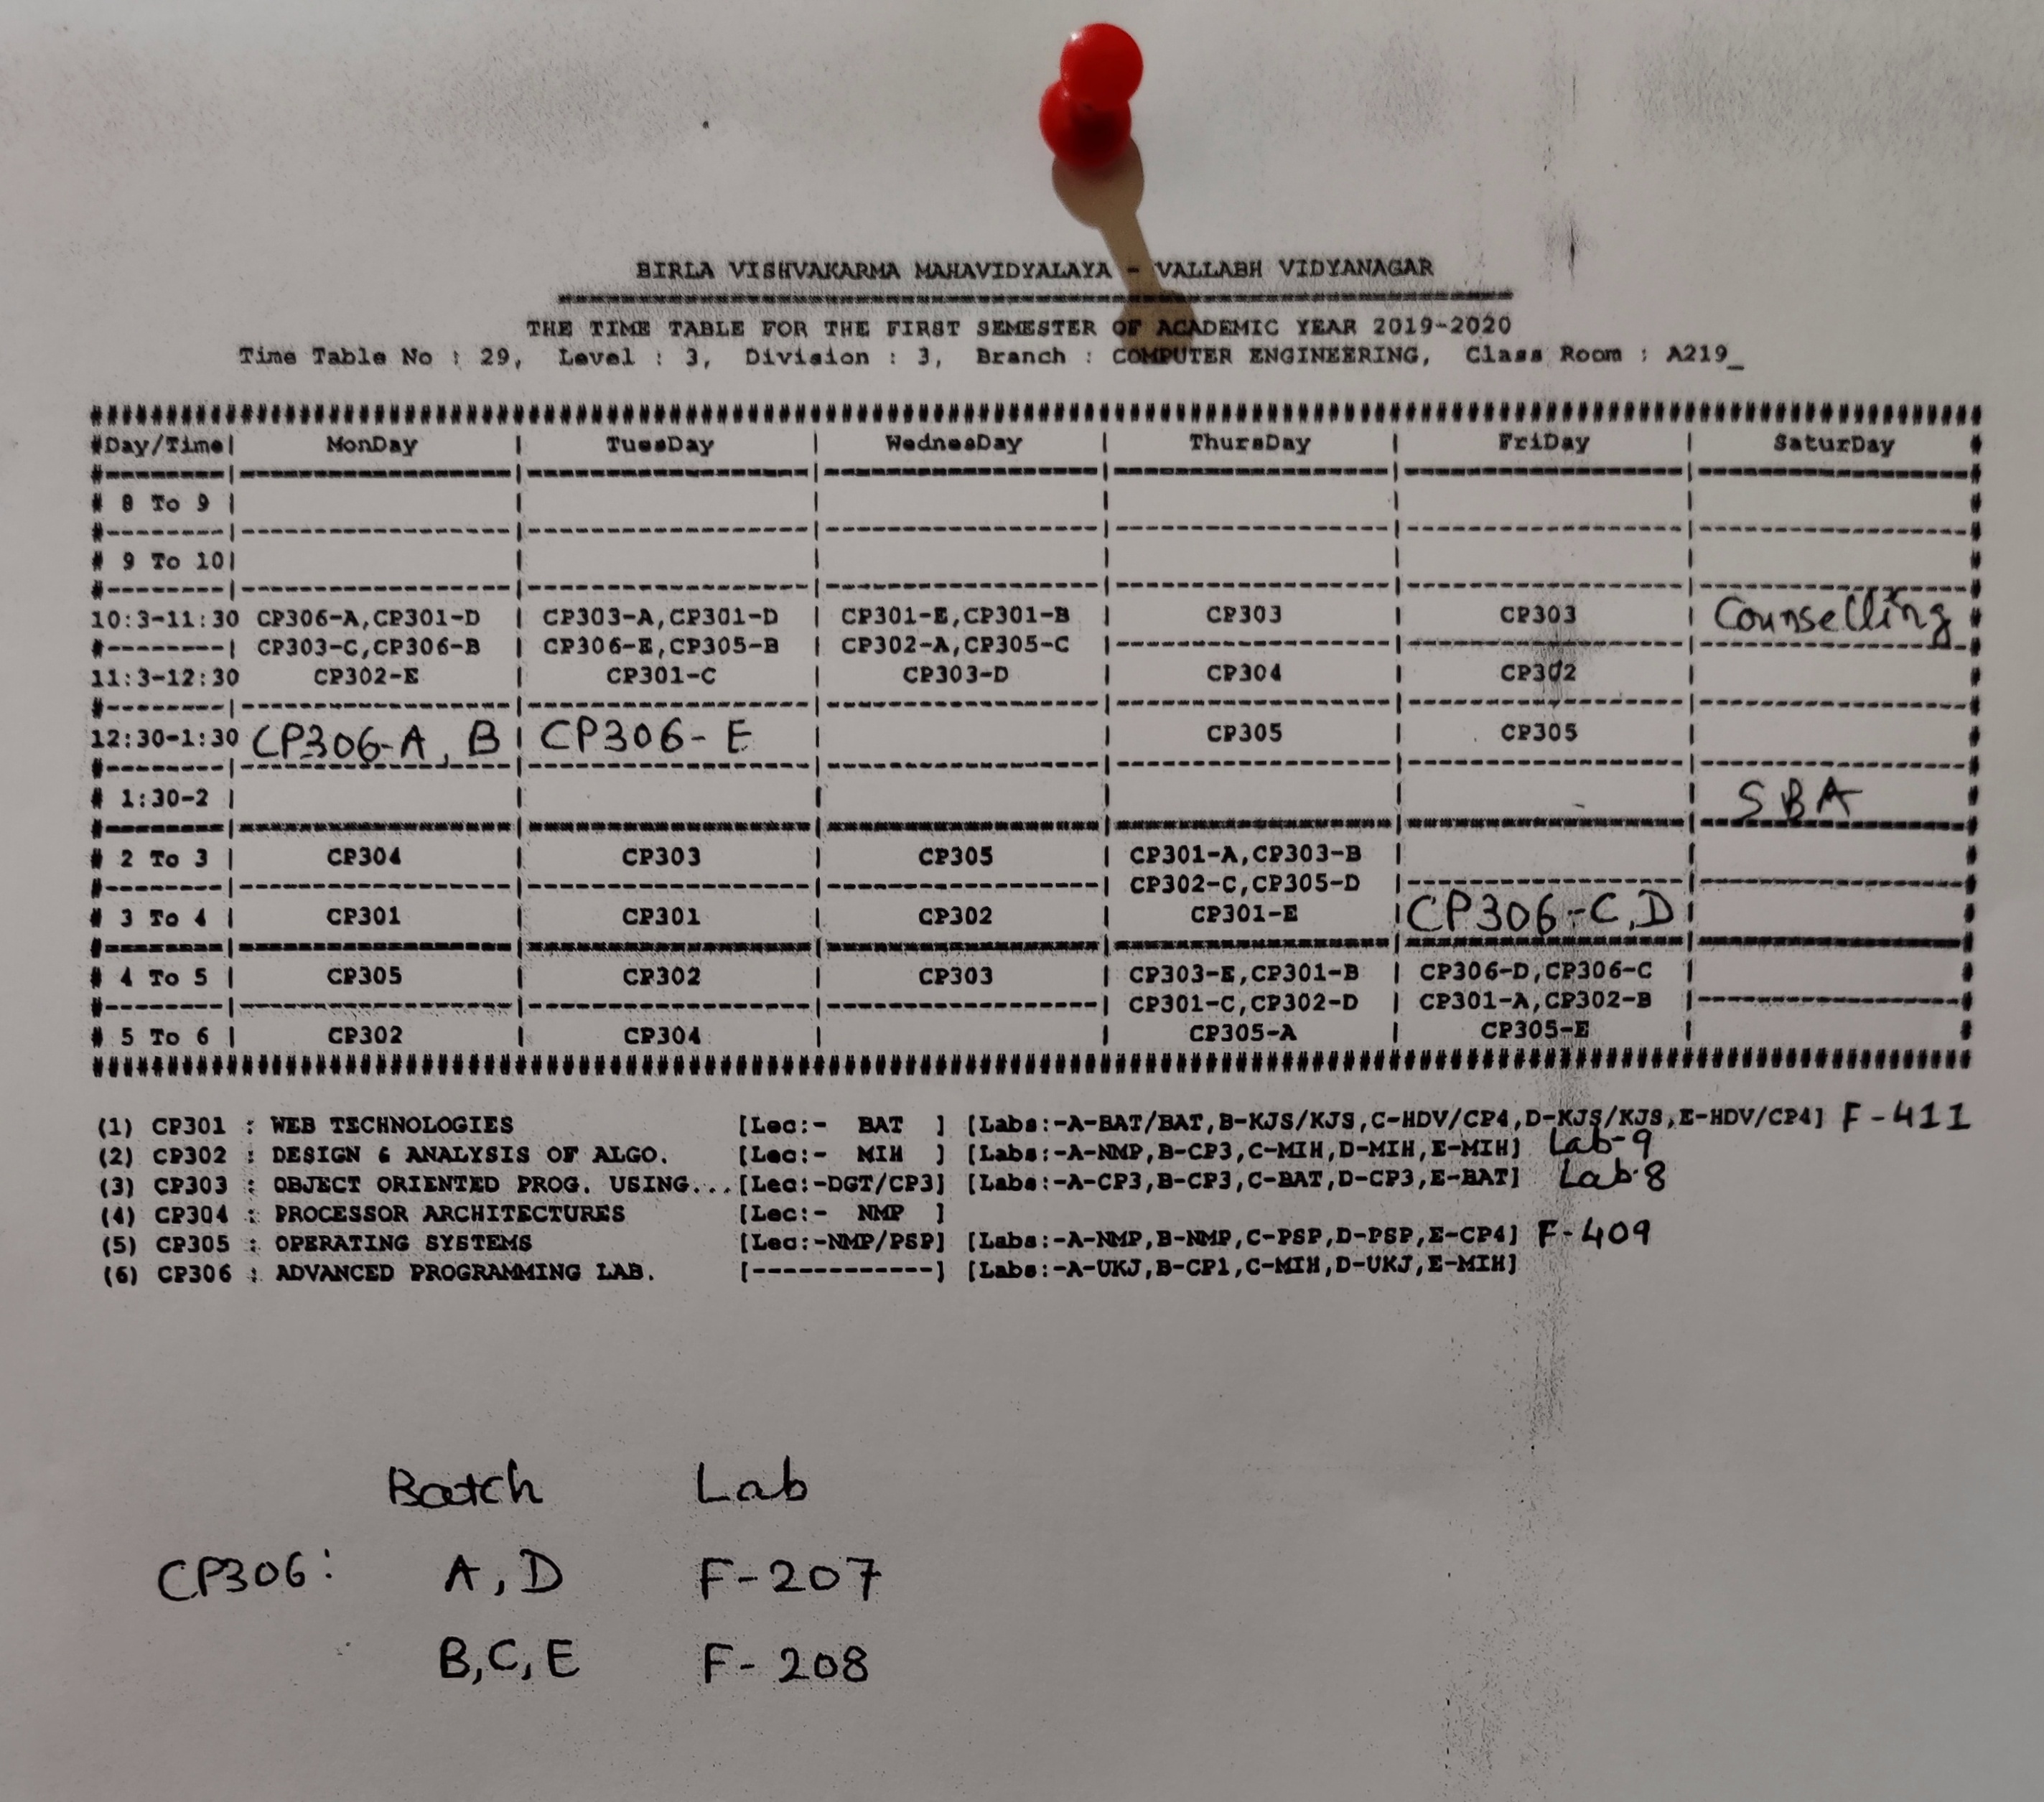 BIRLA VISHVAKARMA MAHAVIDYALAYA - VALLABH VIDYANAGAR
THE TIME TABLE FOR THE FIRST SEMESTER OF ACADEMIC YEAR 2019-2020
Time Table No : 29, Level : 3, Division : 3, Branch : COMPUTER ENGINEERING, Class Room : A219_
#Day/Time| MonDay | TuesDay | WednesDay | ThursDay | FriDay | SaturDay #
# 8 To 9 |
# 9 To 10|
10:3-11:30 CP306-A,CP301-D | CP303-A,CP301-D | CP301-E,CP301-B | CP303 | CP303 | Counselling #
#--------| CP303-C,CP306-B | CP306-E,CP305-B | CP302-A,CP305-C |
11:3-12:30 CP302-E | CP301-C | CP303-D | CP304 | CP302 | #
12:30-1:30 CP306-A, B | CP306-E | | CP305 | CP305 | #
# 1:30-2 | | | | | | SBA #
# 2 To 3 | CP304 | CP303 | CP305 | CP301-A,CP303-B | | #
#--------|-----------------|-----------------|-----------------| CP302-C,CP305-D |
# 3 To 4 | CP301 | CP301 | CP302 | CP301-E | CP306-C,D | #
# 4 To 5 | CP305 | CP302 | CP303 | CP303-E,CP301-B | CP306-D,CP306-C | #
#--------|-----------------|-----------------|-----------------| CP301-C,CP302-D | CP301-A,CP302-B |
# 5 To 6 | CP302 | CP304 | | CP305-A | CP305-E | #
(1) CP301 : WEB TECHNOLOGIES [Lec:- BAT ] [Labs:-A-BAT/BAT,B-KJS/KJS,C-HDV/CP4,D-KJS/KJS,E-HDV/CP4] F-411
(2) CP302 : DESIGN & ANALYSIS OF ALGO. [Lec:- MIH ] [Labs:-A-NMP,B-CP3,C-MIH,D-MIH,E-MIH] Lab-9
(3) CP303 : OBJECT ORIENTED PROG. USING...[Lec:-DGT/CP3] [Labs:-A-CP3,B-CP3,C-BAT,D-CP3,E-BAT] Lab-8
(4) CP304 : PROCESSOR ARCHITECTURES [Lec:- NMP ]
(5) CP305 : OPERATING SYSTEMS [Lec:-NMP/PSP] [Labs:-A-NMP,B-NMP,C-PSP,D-PSP,E-CP4] F-409
(6) CP306 : ADVANCED PROGRAMMING LAB. [------------] [Labs:-A-UKJ,B-CP1,C-MIH,D-UKJ,E-MIH]
Batch Lab
CP306: A, D F-207
B, C, E F-208